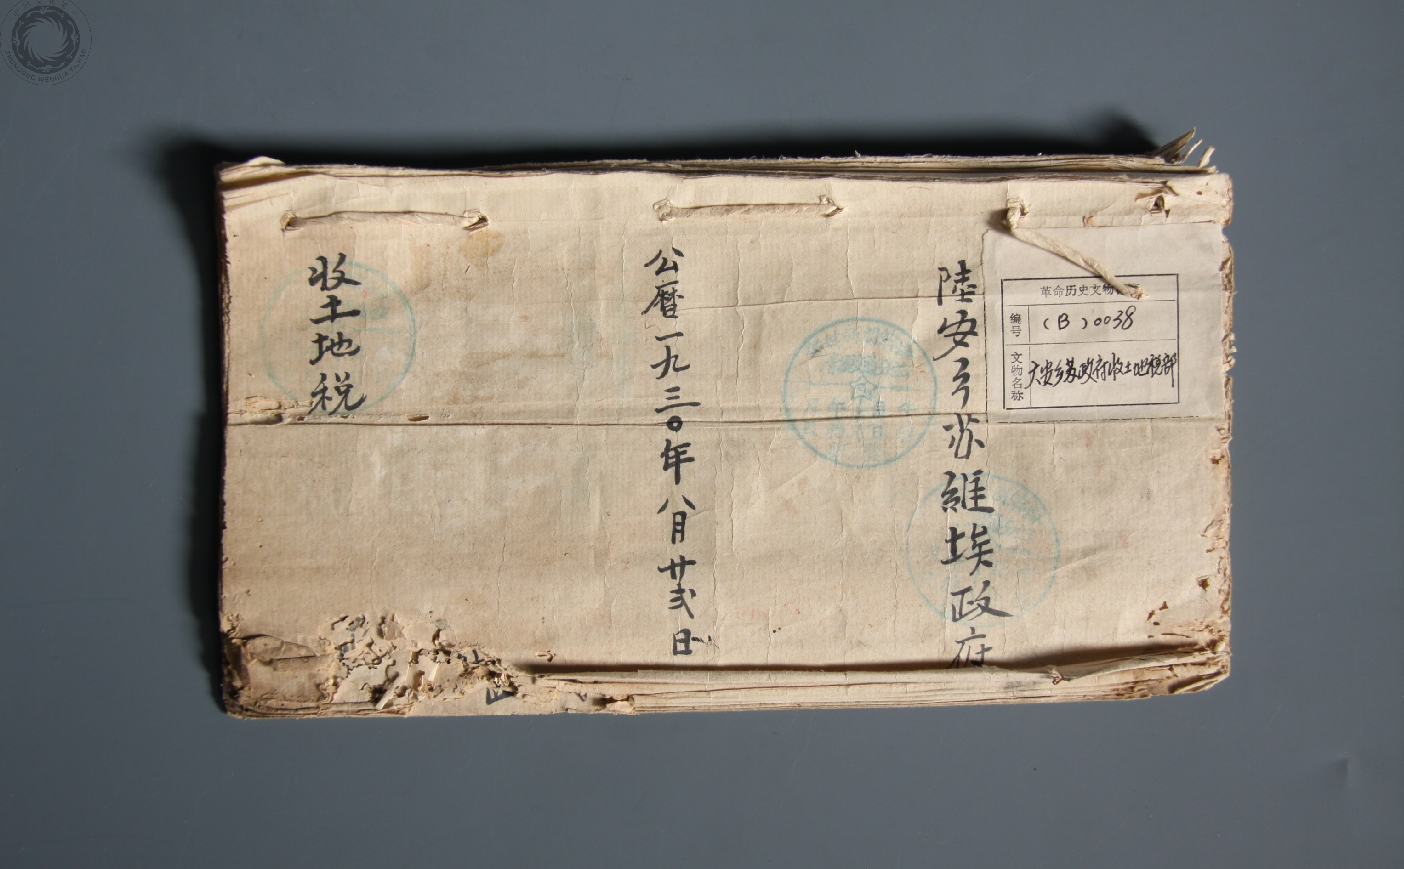 陸安乡苏維埃政府
公曆一九三〇年八月廿弍日
收土地税
革命历史文物
编号
(B)0038
文物名称
六安乡苏政府收土地税部